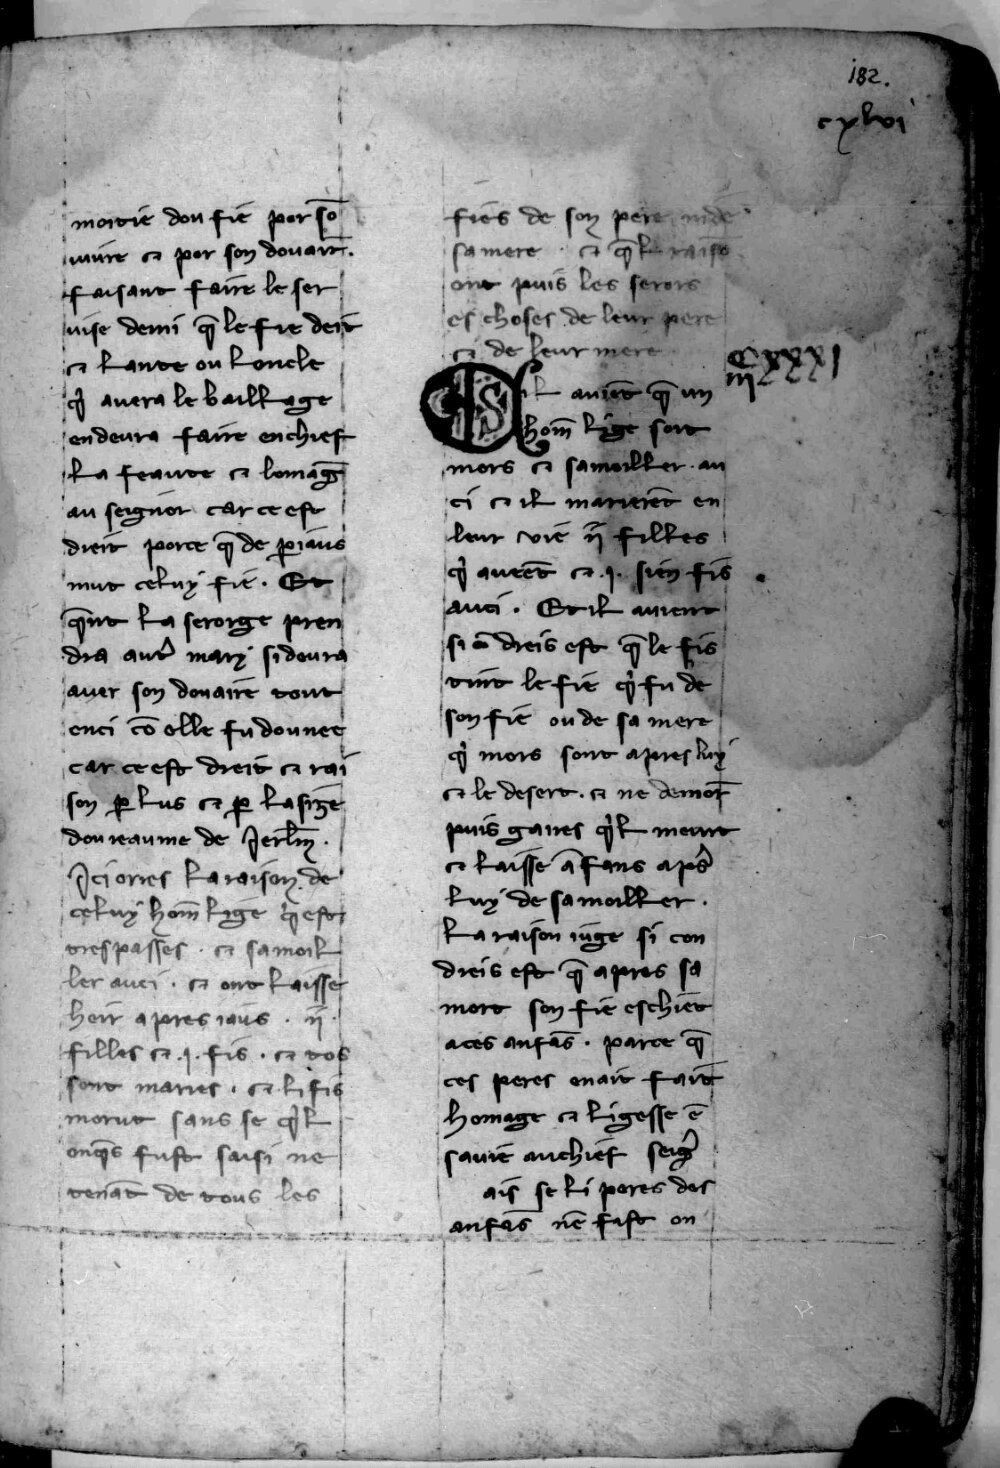 182.
cxlvi
moitie dou fie por sō
vivre ⁊ por son douair̄.
faisant faire le ser
uise demi q̄ le fie deit
⁊ lante ou loncle
q̇ auera le baillage
en deura faire en chief
la feaute ⁊ lomag̅
au seignor car ce est
dreit porce q̄ de ꝑ iaus
mut celuy fie. Et
q̄nt la serorge pren
dra autr̄ mary si deura
auer son donaire tout
enci cō elle fu dounee
car ce est dreit ⁊ rai
son ꝑ lus ⁊ ꝑ lasize
dou reaume de Jerl̄m.
Ici orres la raison de
celuy hom̄ lige q̇ est
trespasses. ⁊ sa moil
ler auci. ⁊ ont laisse
heir apres iaus. ij.
filles ⁊ .i. fis. ⁊ tos
sont maries. ⁊ li fis
morut sans se q̇l
onq̄s fust saisi ne
tenāt de tous les
fies de son pere
sa mere ⁊ q̄l raisō
ont puis les serors
es choses de leur pere
⁊ de leur mere
CXXXI
iij
Sil auiēt q̄ un
hom̄ lige soit
mors ⁊ sa moiller. au
ci ⁊ il marierēt en
leur vie ij filles
q̇ aueēt ⁊ .i. sien fis
auci. Et il auient
si cō dreis est q̄ le fis
tint le fie q̇ fu de
son fie ou de sa mere
q̇ mors sont apres luy
⁊ le desert. ⁊ ne demor̄
puis gaires q̇l meurt
⁊ laisse āfans apr̄s
luy de sa moiller.
la raison iuge si con
dreis est q̄ apres sa
mort son fie eschiet
a ces anfās. parce q̄
ces peres en ait fait
homage ⁊ ligesse ē
sa vie au chief seigr̄
ais se li peres des
anfās nē fist on